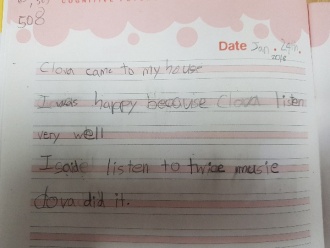 508
Date Jan. 24th.
2018
Clova came to my house
I was happy because Clova listen
very well
I saide listen to twice music
clova did it.